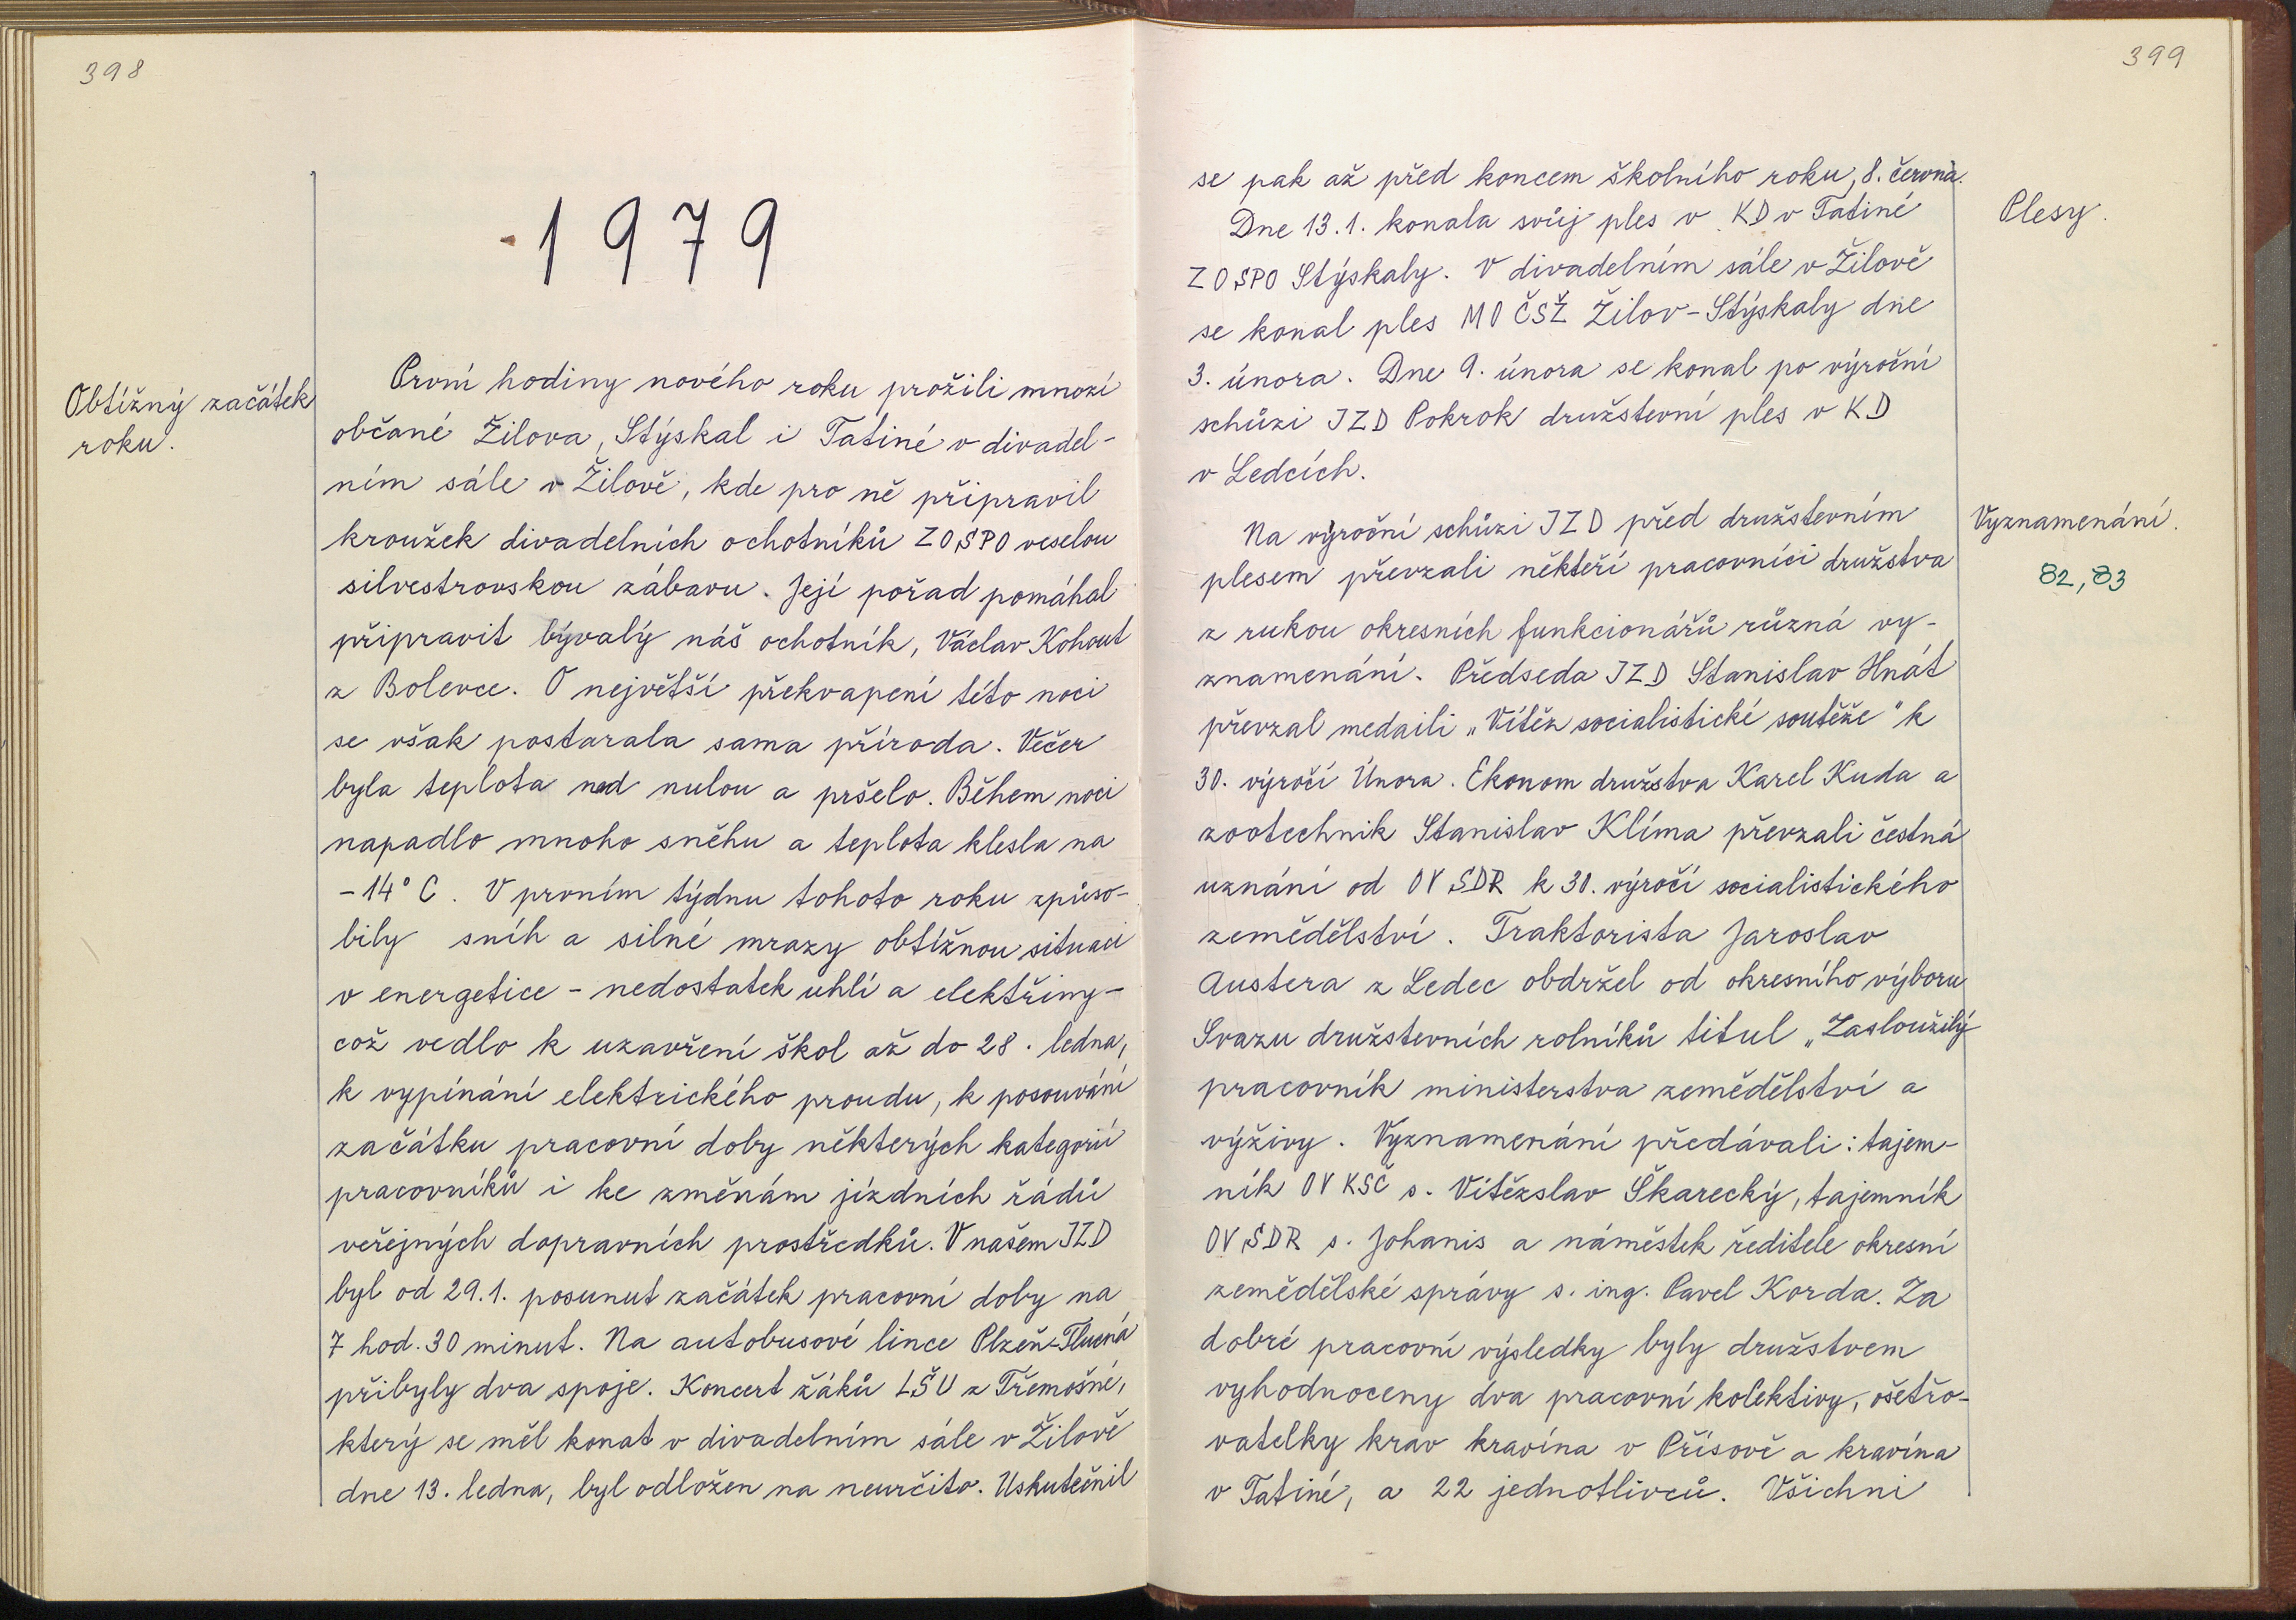 398
1979
Obtížný začátek
roku.
První hodiny nového roku prožili mnozí
občané Žilova, Stýskal i Tatiné v divadel-
ním sále v Žilově, kde pro ně připravil
kroužek divadelních ochotníků ZO SPO veselou
silvestrovskou zábavu. Její pořad pomáhal
připravit bývalý náš ochotník, Václav Kohout
z Bolevce. O největší překvapení této noci
se však postarala sama příroda. Večer
byla teplota nad nulou a pršelo. Během noci
napadlo mnoho sněhu a teplota klesla na
-14° C. V prvním týdnu tohoto roku způso-
bily sníh a silné mrazy obtížnou situaci
v energetice - nedostatek uhlí a elektřiny -
což vedlo k uzavření škol až do 28. ledna,
k vypínání elektrického proudu, k posouvání
začátku pracovní doby některých kategorií
pracovníků i ke změnám jízdních řádů
veřejných dopravních prostředků. V našem JZD
byl od 29.1. posunut začátek pracovní doby na
7 hod. 30 minut. Na autobusové lince Plzeň-Tlucná
přibyly dva spoje. Koncert žáků LŠU z Třemošné,
který se měl konat v divadelním sále v Žilově
dne 13. ledna, byl odložen na neurčito. Uskutečnil
399
se pak až před koncem školního roku, 8. června.
Plesy.
Dne 13.1. konala svůj ples v KD v Tatiné
ZO SPO Stýskaly. V divadelním sále v Žilově
se konal ples MO ČSŽ Žilov-Stýskaly dne
3. února. Dne 9. února se konal po výroční
schůzi JZD Pokrok družstevní ples v KD
v Ledcích.
Vyznamenání.
82, 83
Na výroční schůzi JZD před družstevním
plesem převzali někteří pracovníci družstva
z rukou okresních funkcionářů různá vy-
znamenání. Předseda JZD Stanislav Hnát
převzal medaili „Vítěz socialistické soutěže" k
30. výročí Února. Ekonom družstva Karel Kuda a
zootechnik Stanislav Klíma převzali čestná
uznání od OV SDR k 30. výročí socialistického
zemědělství. Traktorista Jaroslav
Austera z Ledec obdržel od okresního výboru
Svazu družstevních rolníků titul „Zasloužilý
pracovník ministerstva zemědělství a
výživy. Vyznamenání předávali: tajem-
ník OV KSČ s. Vítězslav Škarecký, tajemník
OV SDR s. Johanis a náměstek ředitele okresní
zemědělské správy s. ing. Pavel Korda. Za
dobré pracovní výsledky byly družstvem
vyhodnoceny dva pracovní kolektivy, ošetřo-
vatelky krav kravína v Příšově a kravína
v Tatiné, a 22 jednotlivců. Všichni